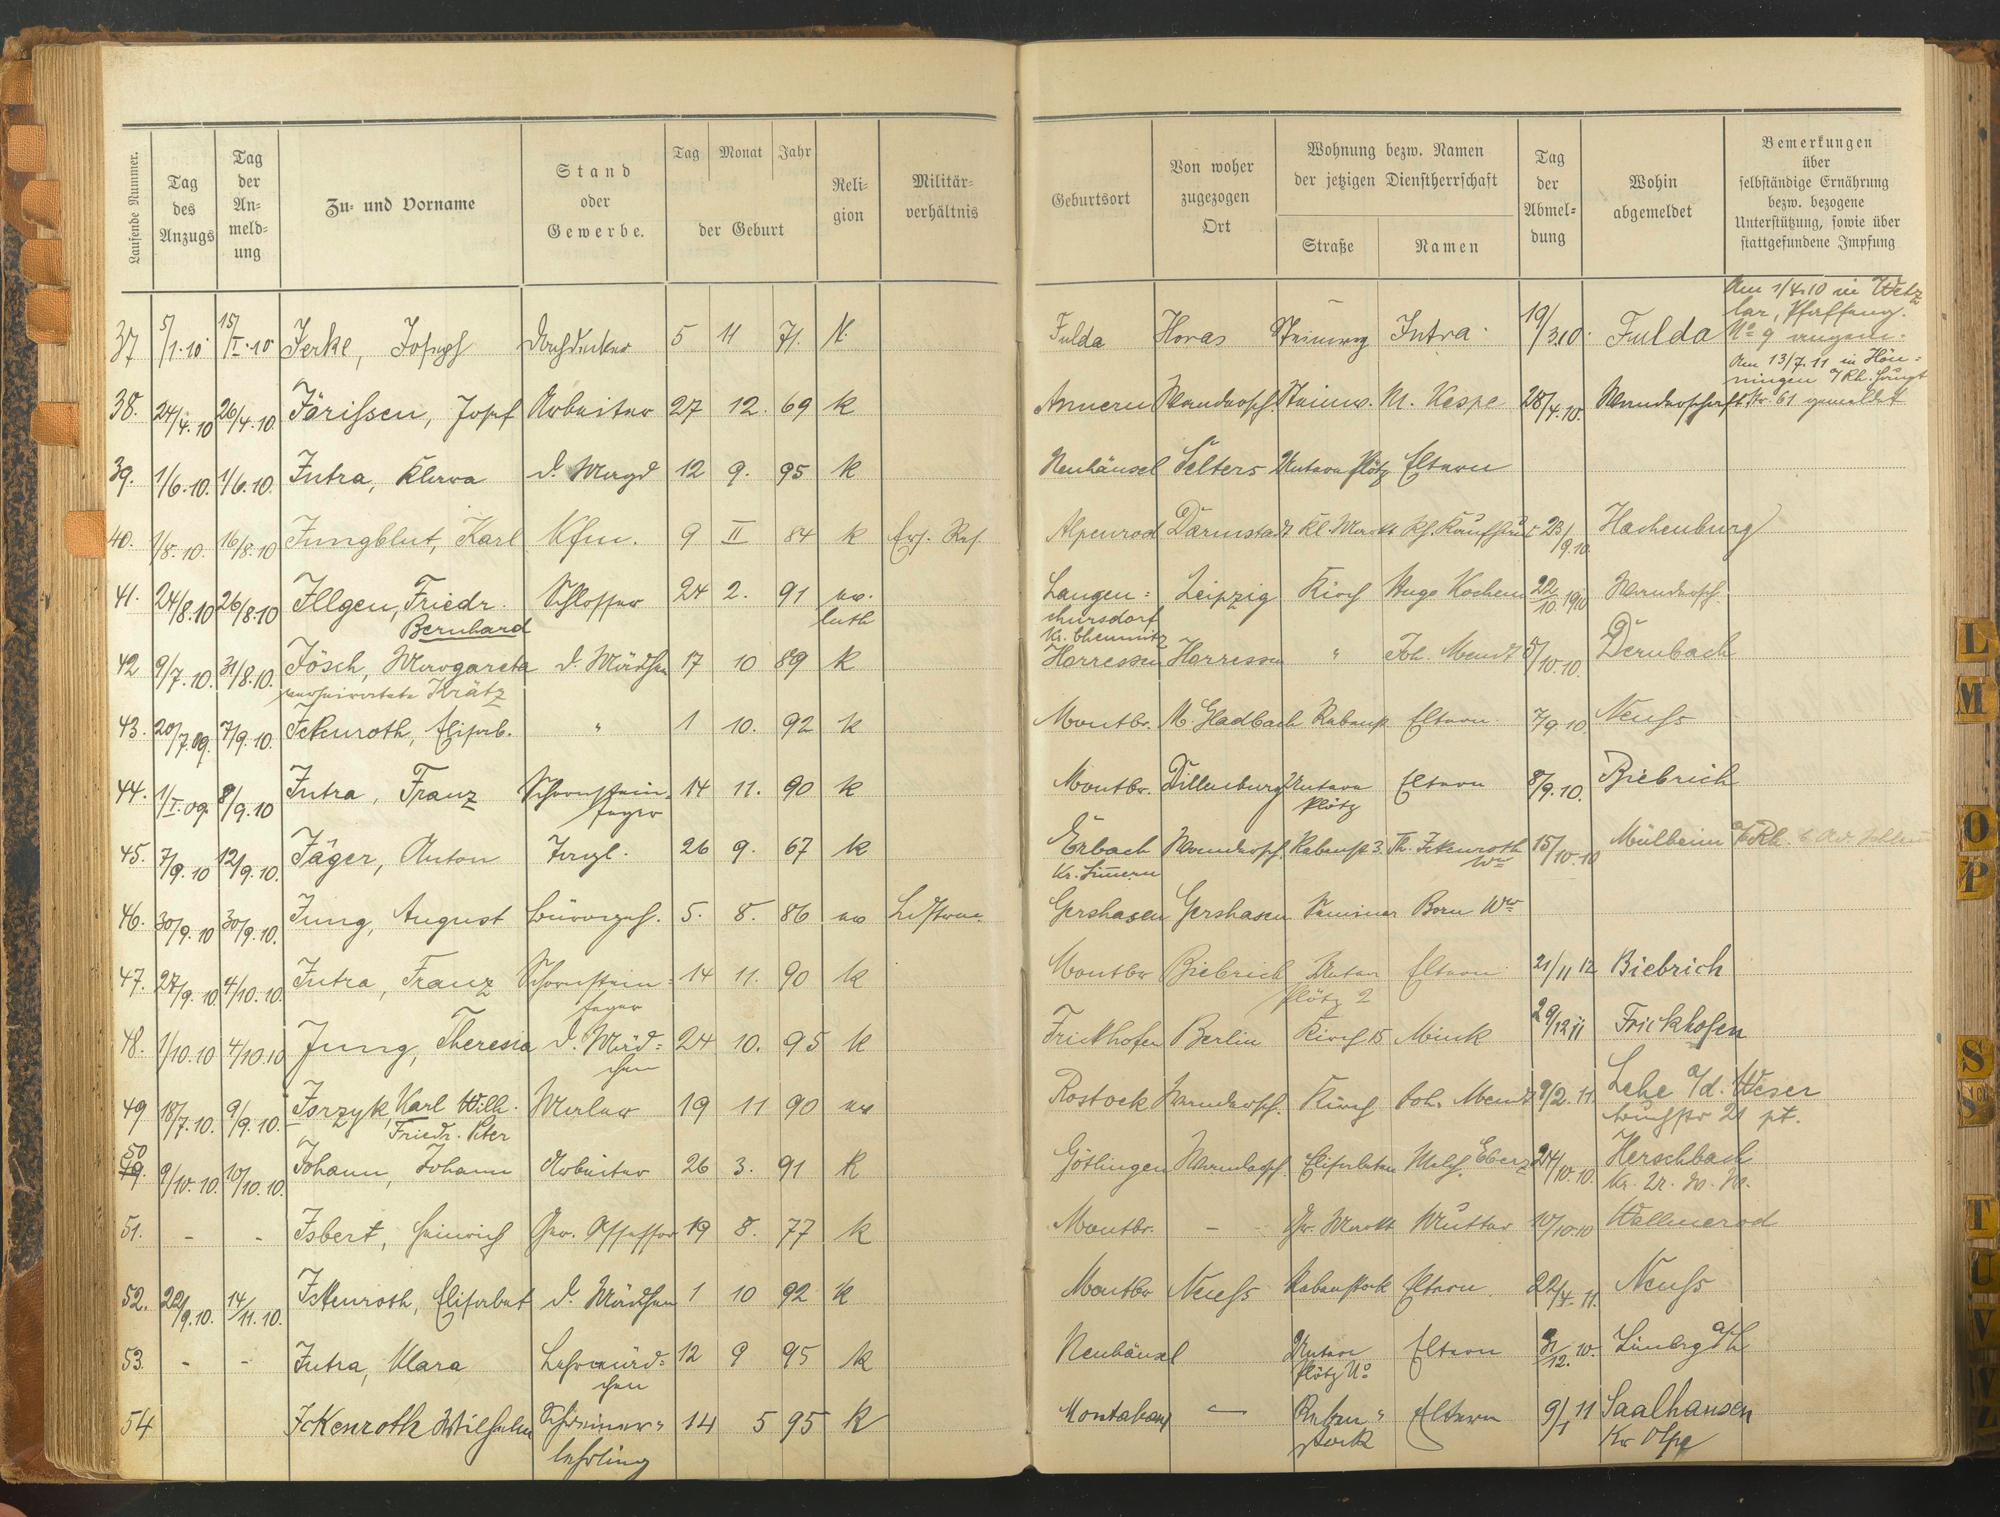 Laufende Nummer.
Tag des Anzugs
Tag der An- meld- ung
Zu- und Vorname
Stand oder Gewerbe.
Tag Monat Jahr
der Geburt
Reli- gion
Militär- verhältnis
Geburtsort
Von woher zugezogen Ort
Wohnung bezw. Namen der jetzigen Dienstherrschaft
Straße Namen
Tag der Abmel- dung
Wohin abgemeldet
Bemerkungen
über
selbständige Ernährung
bezw. bezogene
Unterstützung, sowie über
stattgefundene Impfung
Am 1/4.10 in Wetz
lar, Pfaffeng.
37 5/1.10 15/I.10 Jerke, Joseph Dachdecker 5 11 71. K. Fulda Horas Steinweg Intra 19/3.10. Fulda No 9
Am 13/7.11 in Hön-
ningen a/Rh.
38. 24/4.10 26/4.10. Järissen, Josef Arbeiter 27 12. 69 k Annern Wandersch. Steinw. M. Kespe 28/4.10. Wanderschaft Nr. 61 gemeldet
39. 1/6.10. 1/6.10. Intra, Klara d. Magd 12 9. 95 k Neuhäusel Selters Untere Plötz Eltern
40. 1/8.10. 16/8.10 Jungblut, Karl Kfm. 9 II 84 k Ers. Res. Alpenrod Darmstadt Kl. Markt 23/9.10 Hachenburg
41. 24/8.10 26/8.10 Illgen, Friedr. Schlosser 24 2. 91 ev. Langen- Leipzig Kirch Hugo Kochem 22/10.1910 Wandersch.
Bernhard luth chursdorf
Kr. Chemnitz
42 9/7.10. 31/8.10. Jösch, Margareta d. Mädchen 17 10 89 k Horressen Horressen " Joh. Mendt 5/10.10. Dernbach
verheiratete Krätz
43. 20/7.09. 7/9.10. Ickenroth, Elisab. " 1 10. 92 k Montbr. M. Gladbach Rebenst. Eltern. 7/9.10. Neuss
44. 1/I.09. 8/9.10 Intra, Franz Schornstein- 14 11. 90 k Montbr. Dillenburg Untere Eltern 8/9.10. Biebrich
feger Plötz
45. 7/9.10 12/9.10. Jäger, Anton 26 9. 67 k Erbach Wandersch. Rebenst. 3. Th. Ickenroth 15/10.10 Mülheim a/Rh.
Kr. Limern Ww
46. 30/9.10 30/9.10. Jung, August Bürogeh. 5. 8. 86 ev Gershasen Gershasen Seminar Born Ww
47. 27/9.10 4/10.10. Intra, Franz Schornstein- 14 11. 90 k Montbr Biebrich Unter Eltern 21/11 12 Biebrich
feger Plötz 2
48. 1/10.10 4/10.10 Jung, Theresia d. Mäd- 24 10. 95 k Frickhofen Berlin Kirch 15 Minck 29/12 11 Frickhofen
chen
49 18/7.10. 9/9.10. Isrzyk, Karl Wilh. Maler 19 11 90 ev Rostock Wandersch. Kirch Joh. Mendt 9/2.11. Lehe a/d. Weser
Friedr. Peter 21 pt.
50
49. 9/10.10. 10/10.10. Johann, Johann Arbeiter 26 3. 91 k Götlingen Wandersch. Elisabethen Melch. Eberz 24/10.10. Herschbach
51. - - Isbert, Heinrich Ger. Assessor 19 8. 77 k Montbr. - Gr. Markt Mutter 10/10.10 Wallmerod
52. 22/9.10. 14/11.10. Ickenroth, Elisabet d. Mädchen 1 10 92 k Montbr Neuss Rebenstock Eltern. 22/4.11. Neuss
53. - - Intra, Klara Lehrmäd- 12 9 95 k Neuhäusel Untere Eltern 31/12.10. Limbrg a/L
chen Plötz No
54 Ickenroth Wilhelm Schreiner- 14 5 95 k Montabaur — Reben- Eltern 9/1 11 Saalhausen
lehrling stock Kr Olpe
L
M
O
P
S
T
U
V
W
Z